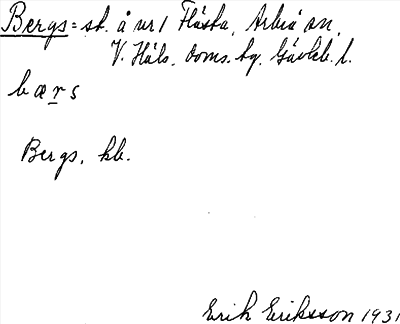 Bergs = st. å nr 1 Flästa, Arbrå sn,
V. Häls. doms. tg. Gävleb. l.
bærs
Bergs, hb.
Erik Eriksson 1931